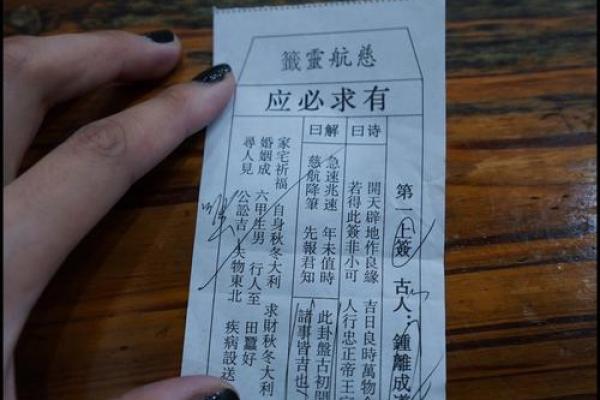 慈航靈籤
有求必应
第一上簽 古人：鍾離成
诗曰
開天辟地作良緣 吉日良時萬物
若得此簽非小可 人行忠正帝王
解曰
急速兆速 年未值時
慈航降筆 先報君知
此卦盤古初開
諸事皆吉也
家宅祈福 自身秋冬大利 求財秋冬大利
婚姻成 六甲生男 行人至 田蠶好
尋人見 公訟吉 失物東北 疾病設送